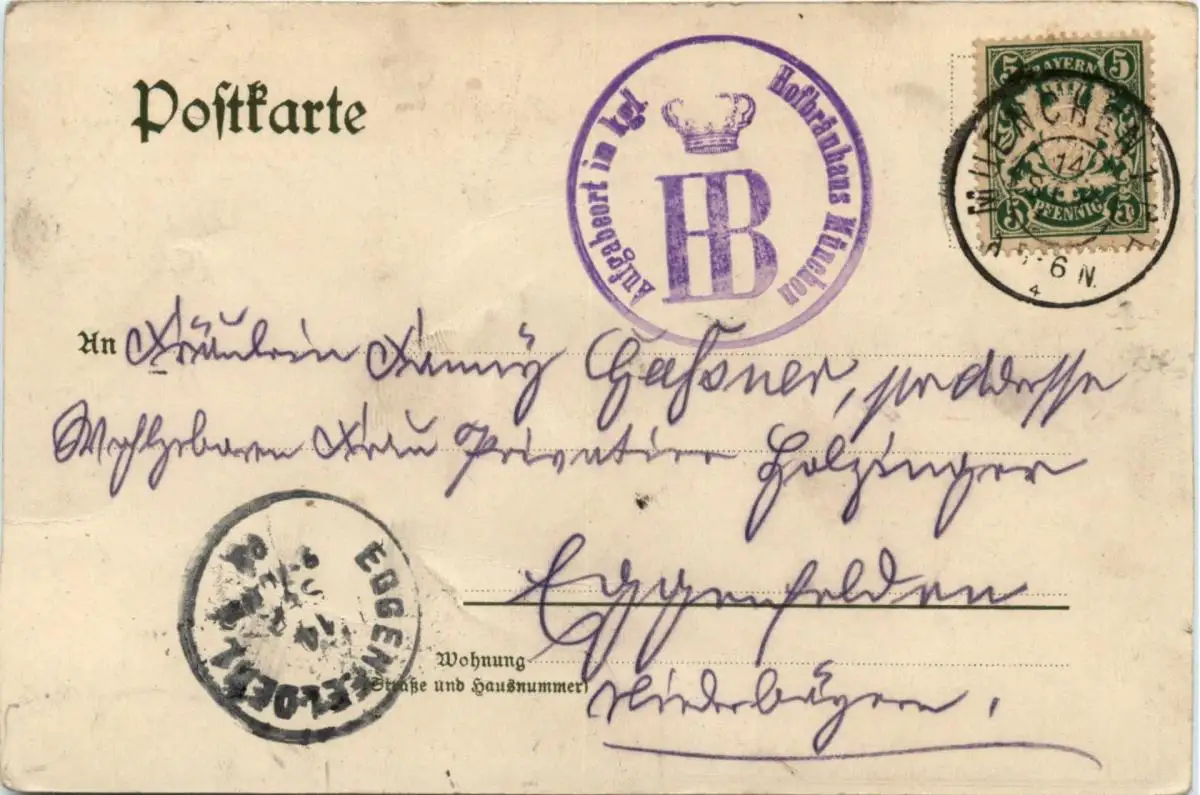 Postkarte
Aufgabeort im kgl. Hofbräuhaus München
HB
5 BAYERN 5
5 PFENNIG 5
MUENCHEN 1
14
6 N.
4
An Fräulein Fanny Gaßner, pr adresse
Wohlgeboren Frau Privatiere Holzinger
Eggenfelden
Wohnung
(Straße und Hausnummer)
Niederbayern.
EGGENFELDEN
14